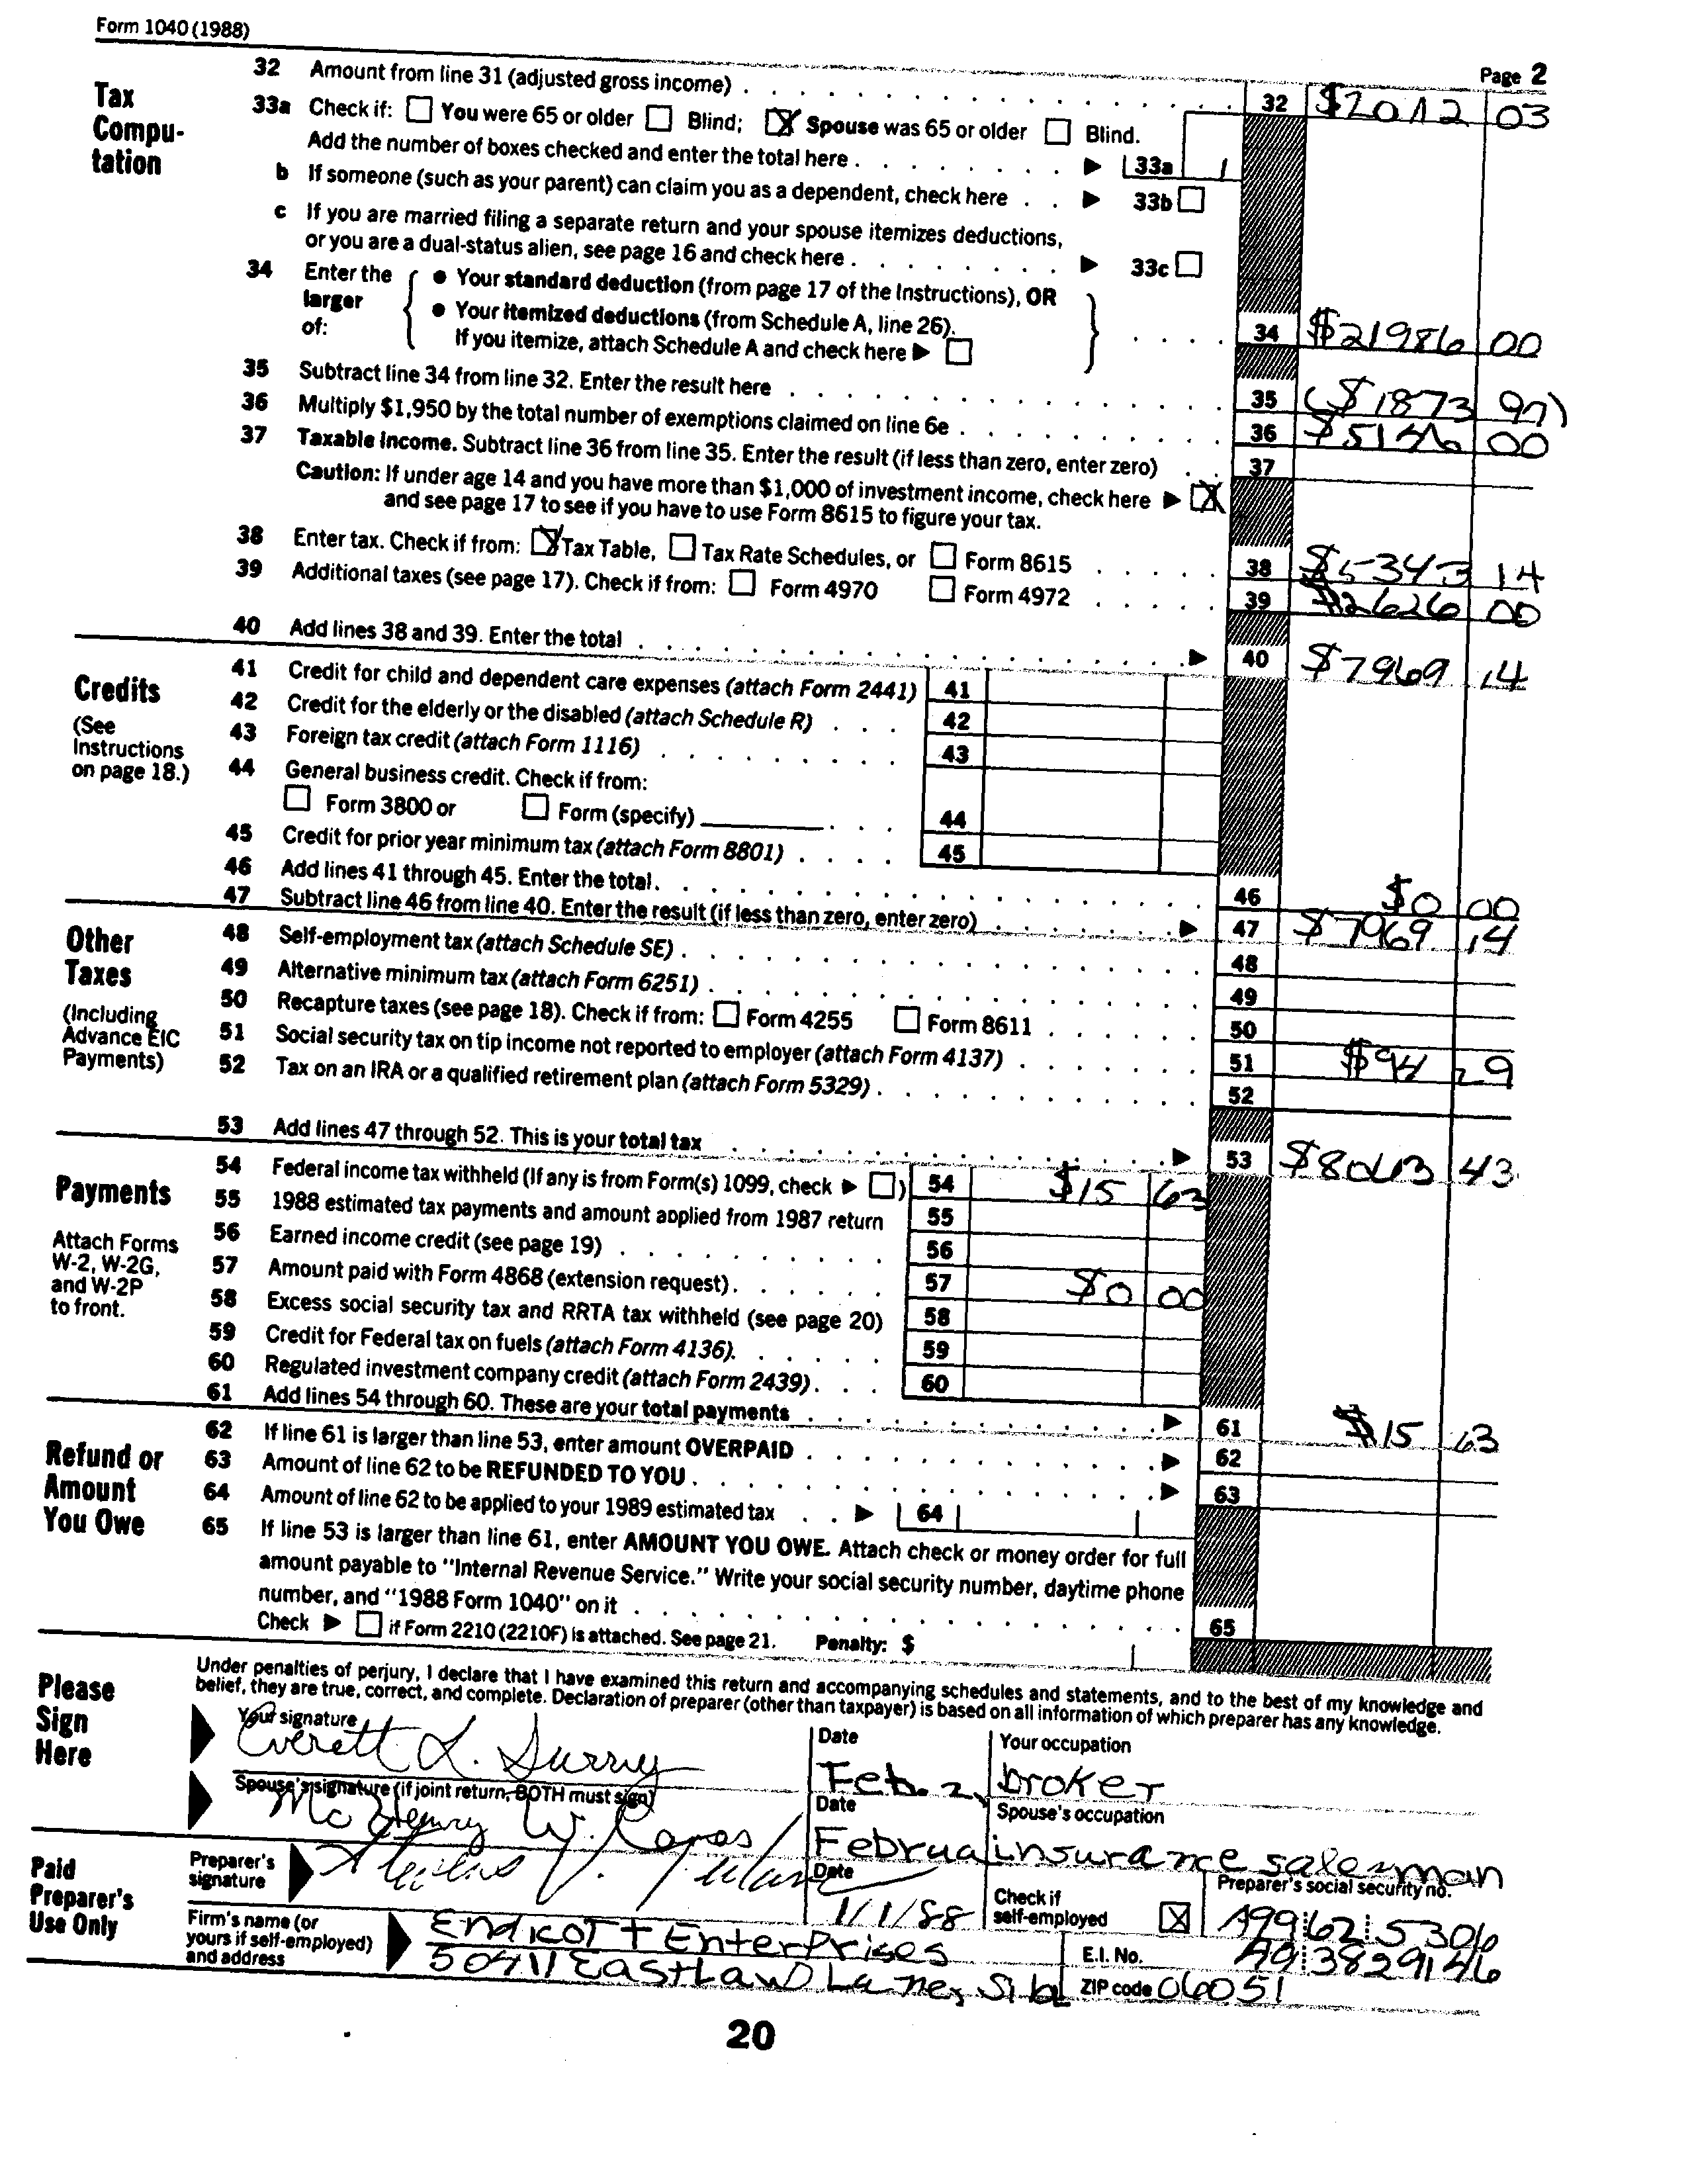 Form 1040 (1988)
Page 2
Tax Compu-tation
32 Amount from line 31 (adjusted gross income) 32 03
33a Check if: You were 65 or older Blind; X Spouse was 65 or older Blind.
Add the number of boxes checked and enter the total here 33a 1
b If someone (such as your parent) can claim you as a dependent, check here 33b
c If you are married filing a separate return and your spouse itemizes deductions,
or you are a dual-status alien, see page 16 and check here 33c
34 Enter the larger of:
● Your standard deduction (from page 17 of the Instructions), OR
● Your itemized deductions (from Schedule A, line 26).
If you itemize, attach Schedule A and check here ▶
34 $21986 00
35 Subtract line 34 from line 32. Enter the result here 35 ($1873 97)
36 Multiply $1,950 by the total number of exemptions claimed on line 6e 36 00
37 Taxable income. Subtract line 36 from line 35. Enter the result (if less than zero, enter zero) 37
Caution: If under age 14 and you have more than $1,000 of investment income, check here ▶ X
and see page 17 to see if you have to use Form 8615 to figure your tax.
38 Enter tax. Check if from: X Tax Table, Tax Rate Schedules, or Form 8615 38 $5343 14
39 Additional taxes (see page 17). Check if from: Form 4970 Form 4972 39 $2626 00
40 Add lines 38 and 39. Enter the total ▶ 40 $7969 14
Credits
(See Instructions on page 18.)
41 Credit for child and dependent care expenses (attach Form 2441) 41
42 Credit for the elderly or the disabled (attach Schedule R) 42
43 Foreign tax credit (attach Form 1116) 43
44 General business credit. Check if from:
Form 3800 or Form (specify) 44
45 Credit for prior year minimum tax (attach Form 8801) 45
46 Add lines 41 through 45. Enter the total 46 $0 00
47 Subtract line 46 from line 40. Enter the result (if less than zero, enter zero) ▶ 47 $7969 14
Other Taxes
(Including Advance EIC Payments)
48 Self-employment tax (attach Schedule SE) 48
49 Alternative minimum tax (attach Form 6251) 49
50 Recapture taxes (see page 18). Check if from: Form 4255 Form 8611 50
51 Social security tax on tip income not reported to employer (attach Form 4137) 51 $94 29
52 Tax on an IRA or a qualified retirement plan (attach Form 5329) 52
53 Add lines 47 through 52. This is your total tax ▶ 53 $8063 43
Payments
Attach Forms W-2, W-2G, and W-2P to front.
54 Federal income tax withheld (If any is from Form(s) 1099, check ▶ ) 54 $15 63
55 1988 estimated tax payments and amount applied from 1987 return 55
56 Earned income credit (see page 19) 56
57 Amount paid with Form 4868 (extension request) 57 $0 00
58 Excess social security tax and RRTA tax withheld (see page 20) 58
59 Credit for Federal tax on fuels (attach Form 4136) 59
60 Regulated investment company credit (attach Form 2439) 60
61 Add lines 54 through 60. These are your total payments ▶ 61 $15 63
Refund or Amount You Owe
62 If line 61 is larger than line 53, enter amount OVERPAID ▶ 62
63 Amount of line 62 to be REFUNDED TO YOU ▶ 63
64 Amount of line 62 to be applied to your 1989 estimated tax ▶ 64
65 If line 53 is larger than line 61, enter AMOUNT YOU OWE. Attach check or money order for full
amount payable to "Internal Revenue Service." Write your social security number, daytime phone
number, and "1988 Form 1040" on it 65
Check ▶ if Form 2210 (2210F) is attached. See page 21. Penalty: $
Please Sign Here
Under penalties of perjury, I declare that I have examined this return and accompanying schedules and statements, and to the best of my knowledge and
belief, they are true, correct, and complete. Declaration of preparer (other than taxpayer) is based on all information of which preparer has any knowledge.
Your signature Date Your occupation
Everett L. Surry Feb. 2, broker
Spouse's signature (if joint return, BOTH must sign) Date Spouse's occupation
McHenry W. Februa insurance salesman
Paid Preparer's Use Only
Preparer's signature Date 1/1/88 Check if self-employed X Preparer's social security no. 499 62 5306
Firm's name (or yours if self-employed) and address
Endicott Enterprises E.I. No. 3829146
EastLawn Lane, ZIP code 06051
20